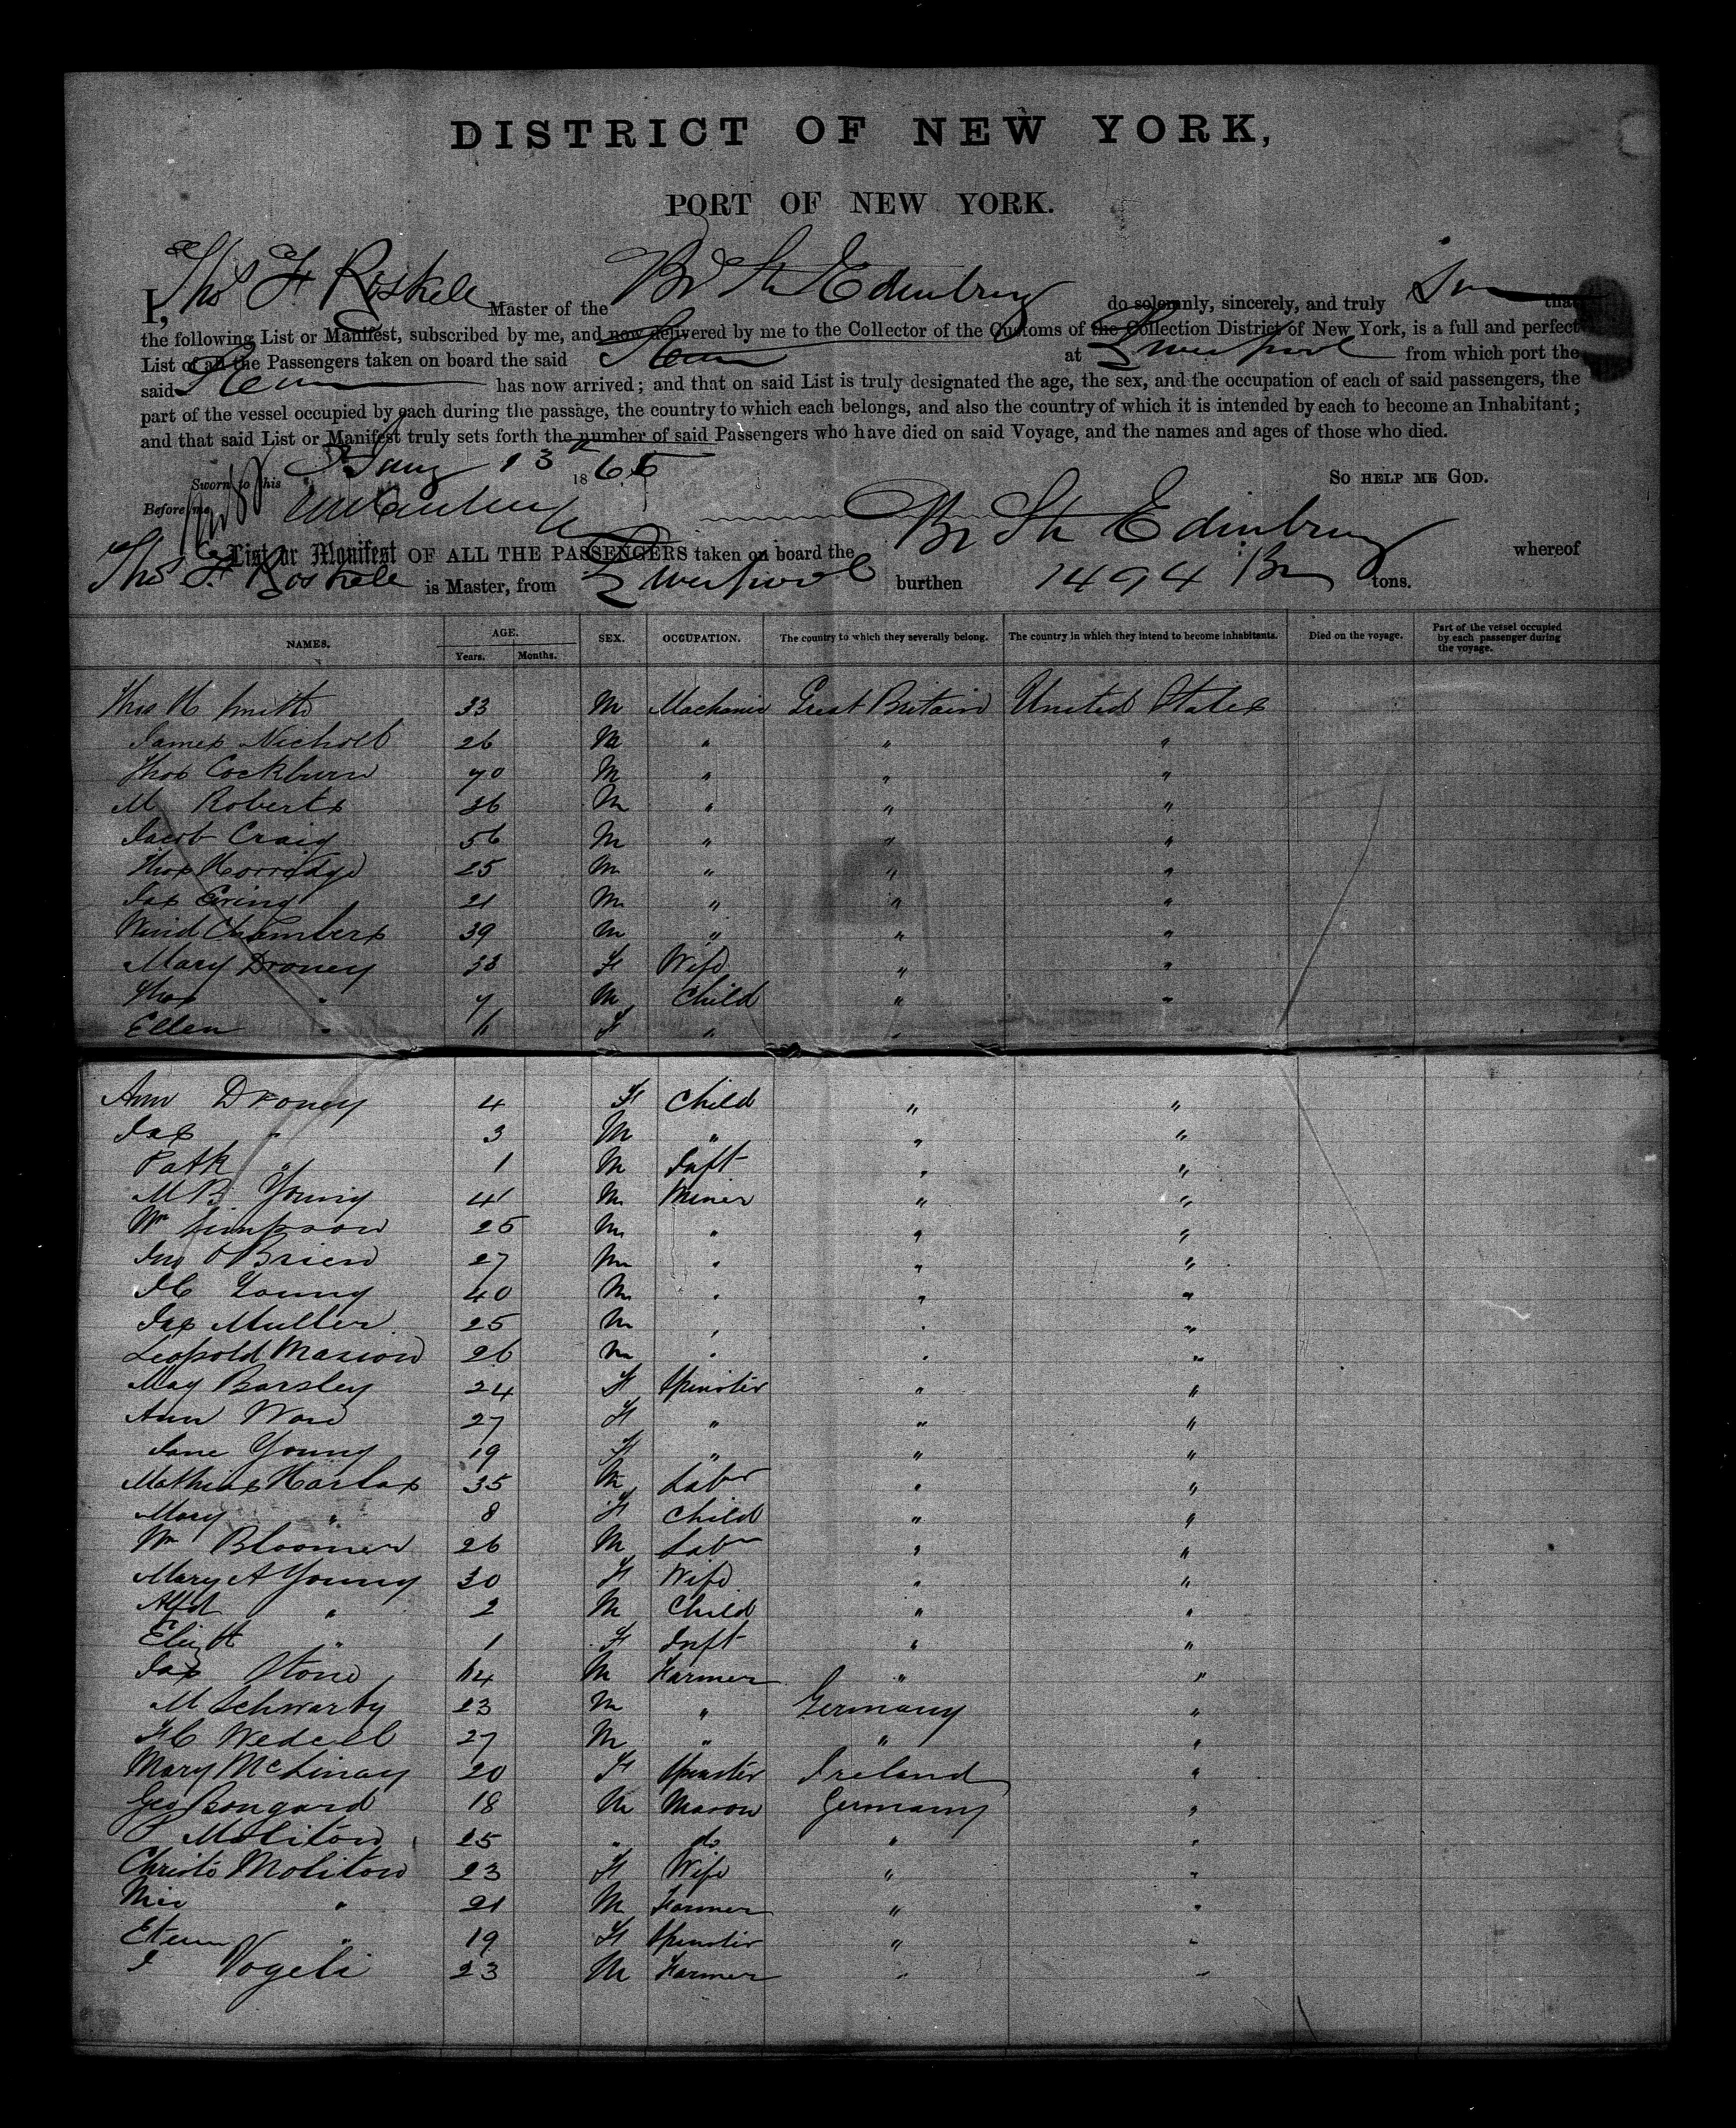 DISTRICT OF NEW YORK,
PORT OF NEW YORK.
I, Thos F Roskell Master of the Br Str Edinburg do solemnly, sincerely, and truly that
the following List or Manifest, subscribed by me, and now delivered by me to the Collector of the Customs of the Collection District of New York, is a full and perfect
List of all the Passengers taken on board the said Steam at Liverpool from which port the
said Steam has now arrived; and that on said List is truly designated the age, the sex, and the occupation of each of said passengers, the
part of the vessel occupied by each during the passage, the country to which each belongs, and also the country of which it is intended by each to become an Inhabitant;
and that said List or Manifest truly sets forth the number of said Passengers who have died on said Voyage, and the names and ages of those who died.
Sworn to this 13th 1865 So help me God.
Before me
List or Manifest OF ALL THE PASSENGERS taken on board the Br Str Edinburg whereof
Thos F Roskell is Master, from Liverpool burthen 1494 Br tons.
NAMES. AGE. SEX. OCCUPATION. The country to which they severally belong. The country in which they intend to become inhabitants. Died on the voyage. Part of the vessel occupied by each passenger during the voyage.
Years. Months.
Thos H Smith 33 M Mechanic Great Britain United States
James Nicholl 26 M " " "
Thos Cockburn 70 M " " "
M Roberts 36 M " " "
Jacob Craig 56 M " " "
Thos Horridge 25 M " " "
Jas Ewing 21 M " " "
Chambers 39 M " " "
Mary Droney 38 F Wife " "
Thos " 7 M Child " "
Ellen " 6 F " " "
Ann Droney 4 F Child " "
Jas " 3 M " " "
Patk " 1 M Inft " "
M B Young 41 M Miner " "
Wm Simpson 25 M " " "
Jno O'Brien 27 M " " "
J C Young 40 M " " "
Jas Muller 25 M " " "
Leopold Marion 26 M " " "
May Barsley 24 F Spinster " "
Ann Ward 27 F " " "
Jane Young 19 F " " "
Mathias Harlax 35 M Labr " "
Mary " 8 F Child " "
Wm Bloomer 26 M Labr " "
Mary A Young 30 F Wife " "
Alfd " 2 M Child " "
Elizth " 1 F Inft " "
Jas Stone 64 M Farmer " "
M Schwarby 23 M " Germany "
F C Wedell 27 M " " "
Mary McLinay 20 F Spinster Ireland "
Geo Bongard 18 M Mason Germany "
P Moliton 25 " do " "
Christo Moliton 23 F Wife " "
Mic " 21 M Farmer " "
" 19 F Spinster " "
J Vogeli 23 M Farmer " "